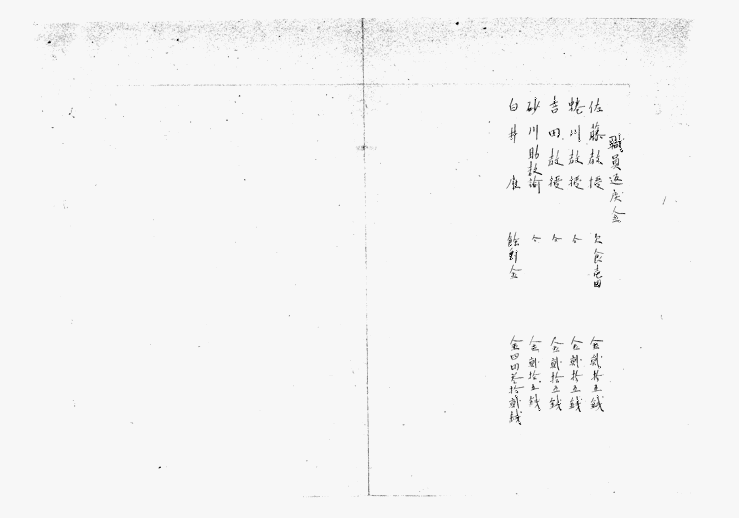 職員返戻金
佐藤教授 欠食壱回 金貳拾五銭
蜷川教授 仝 金貳拾五銭
吉田教授 仝 金貳拾五銭
砂川助教諭 仝 金貳拾五銭
白井 雇 餘剰金 金四円参拾貳銭